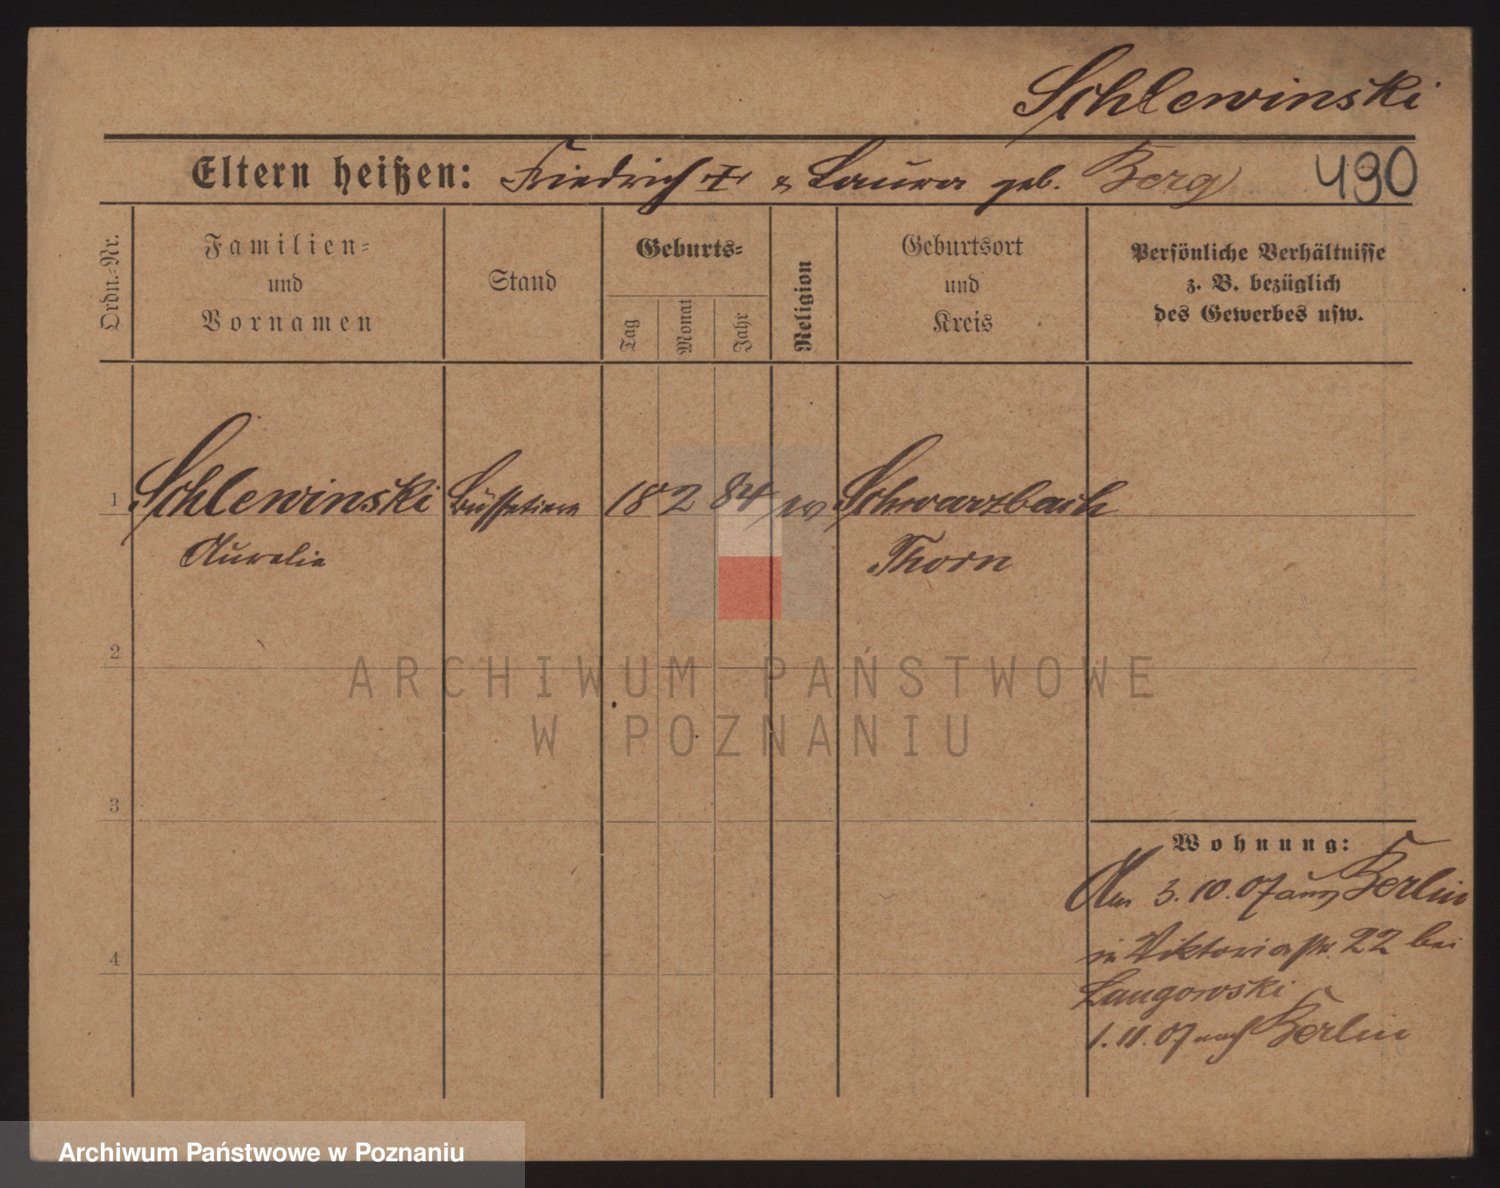 Schlewinski
Eltern heißen: Friedrich † & Laura geb. Berg 490
Ordn.-Nr.
Familien-
und
Vornamen
Stand
Geburts-
Tag
Monat
Jahr
Religion
Geburtsort
und
Kreis
Persönliche Verhältnisse
z. B. bezüglich
des Gewerbes usw.
1 Schlewinski Büffetiere 18 2 84 ev Schwarzbach
Aurelie Thorn
2
ARCHIWUM PAŃSTWOWE
W POZNANIU
3
Wohnung:
Am 3. 10. 07 aus Berlin
in Viktoriastr. 22 bei
4
Langowski
1. 11. 07 nach Berlin
Archiwum Państwowe w Poznaniu